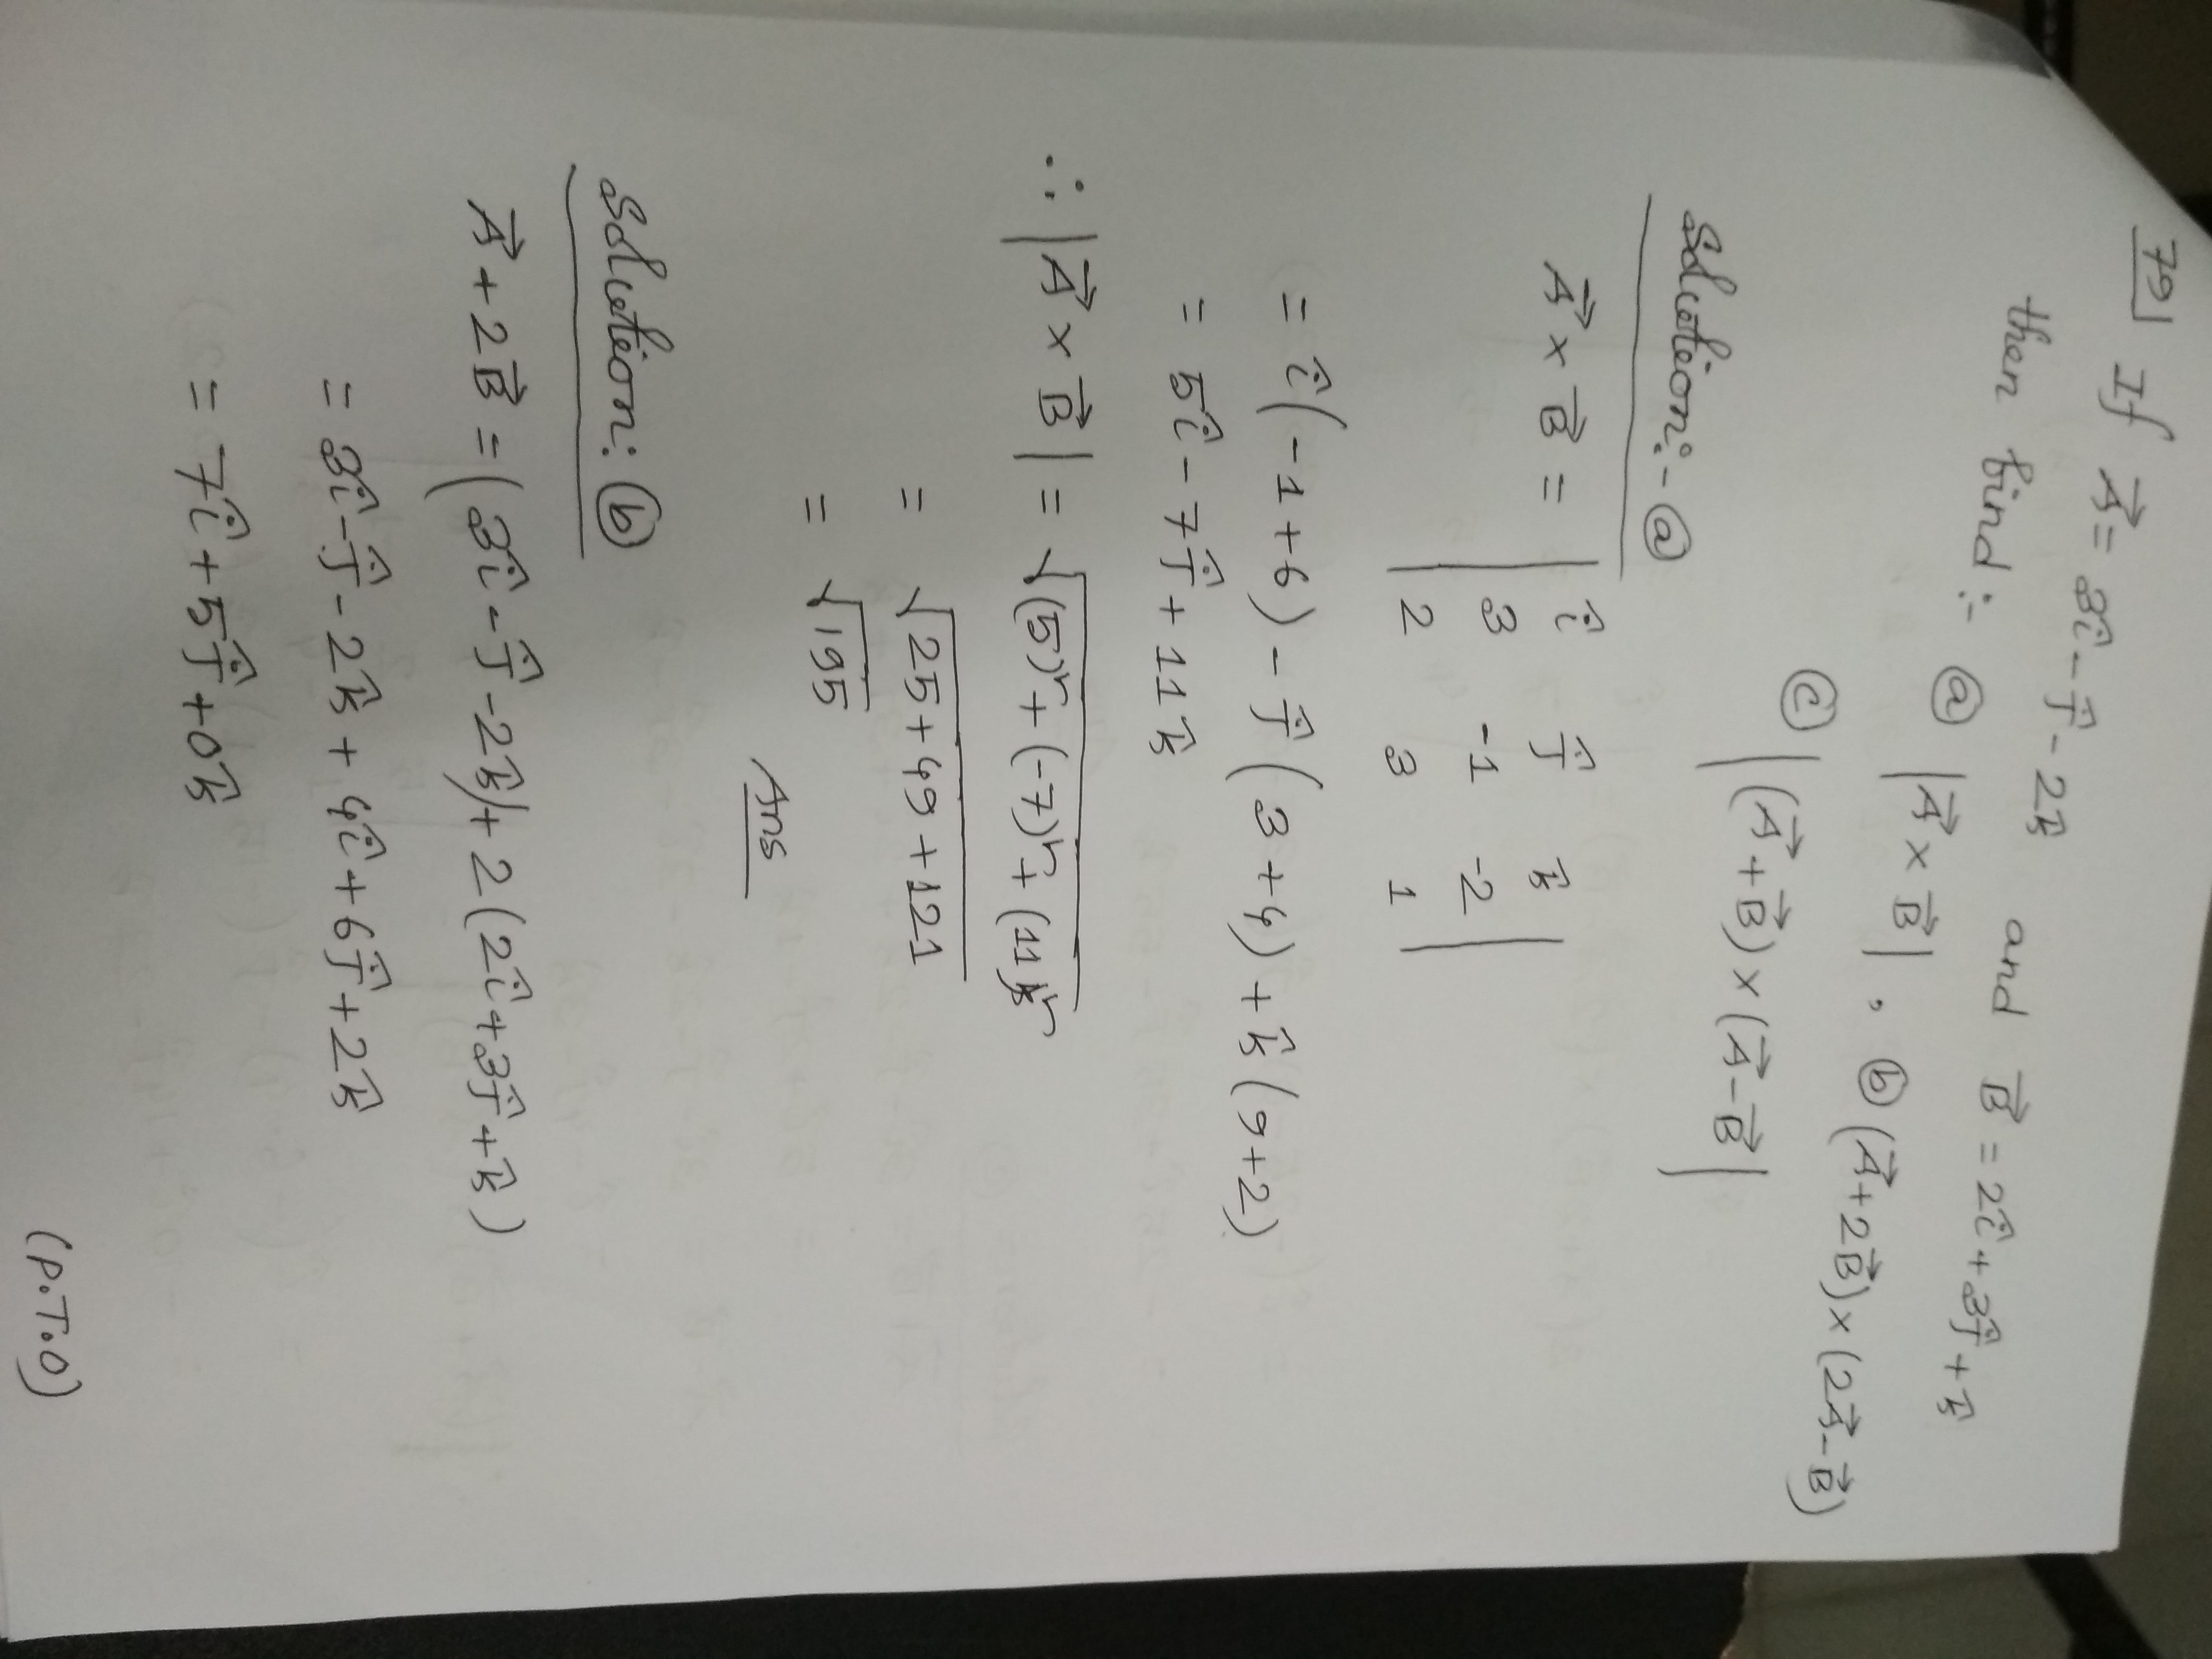 79| If A⃗ = 3î - ĵ - 2k̂ and B⃗ = 2î + 3ĵ + k̂
then find:- ⓐ |A⃗ × B⃗| , ⓑ (A⃗ + 2B⃗) × (2A⃗ - B⃗)
ⓒ |(A⃗ + B⃗) × (A⃗ - B⃗|
Solution:- ⓐ
A⃗ × B⃗ = | î ĵ k̂
3 -1 -2 |
2 3 1 |
= î(-1+6) - ĵ(3+4) + k̂(9+2)
= 5î - 7ĵ + 11k̂
∴ |A⃗ × B⃗| = √(5)² + (-7)² + (11)²
= √25+49+121
= √195
Ans
Solution: ⓑ
A⃗ + 2B⃗ = (3î - ĵ - 2k̂) + 2(2î + 3ĵ + k̂)
= 3î - ĵ - 2k̂ + 4î + 6ĵ + 2k̂
= 7î + 5ĵ + 0k̂
(P.T.O)